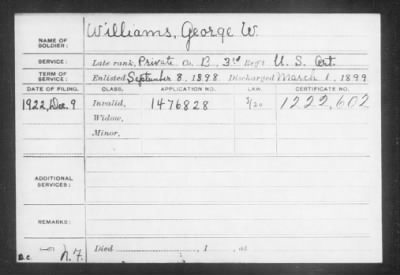 NAME OF SOLDIER: Williams, George W.
SERVICE: Late rank, Private Co. B, 3rd Reg't U. S. Art.
TERM OF SERVICE: Enlisted September 8, 1898 Discharged March 1, 1899
DATE OF FILING. CLASS. APPLICATION NO. LAW. CERTIFICATE NO.
1922, Dec. 9 Invalid, 1476828 1,222,602
Widow,
Minor,
ADDITIONAL SERVICES:
REMARKS:
B.C. Died , 1 , at